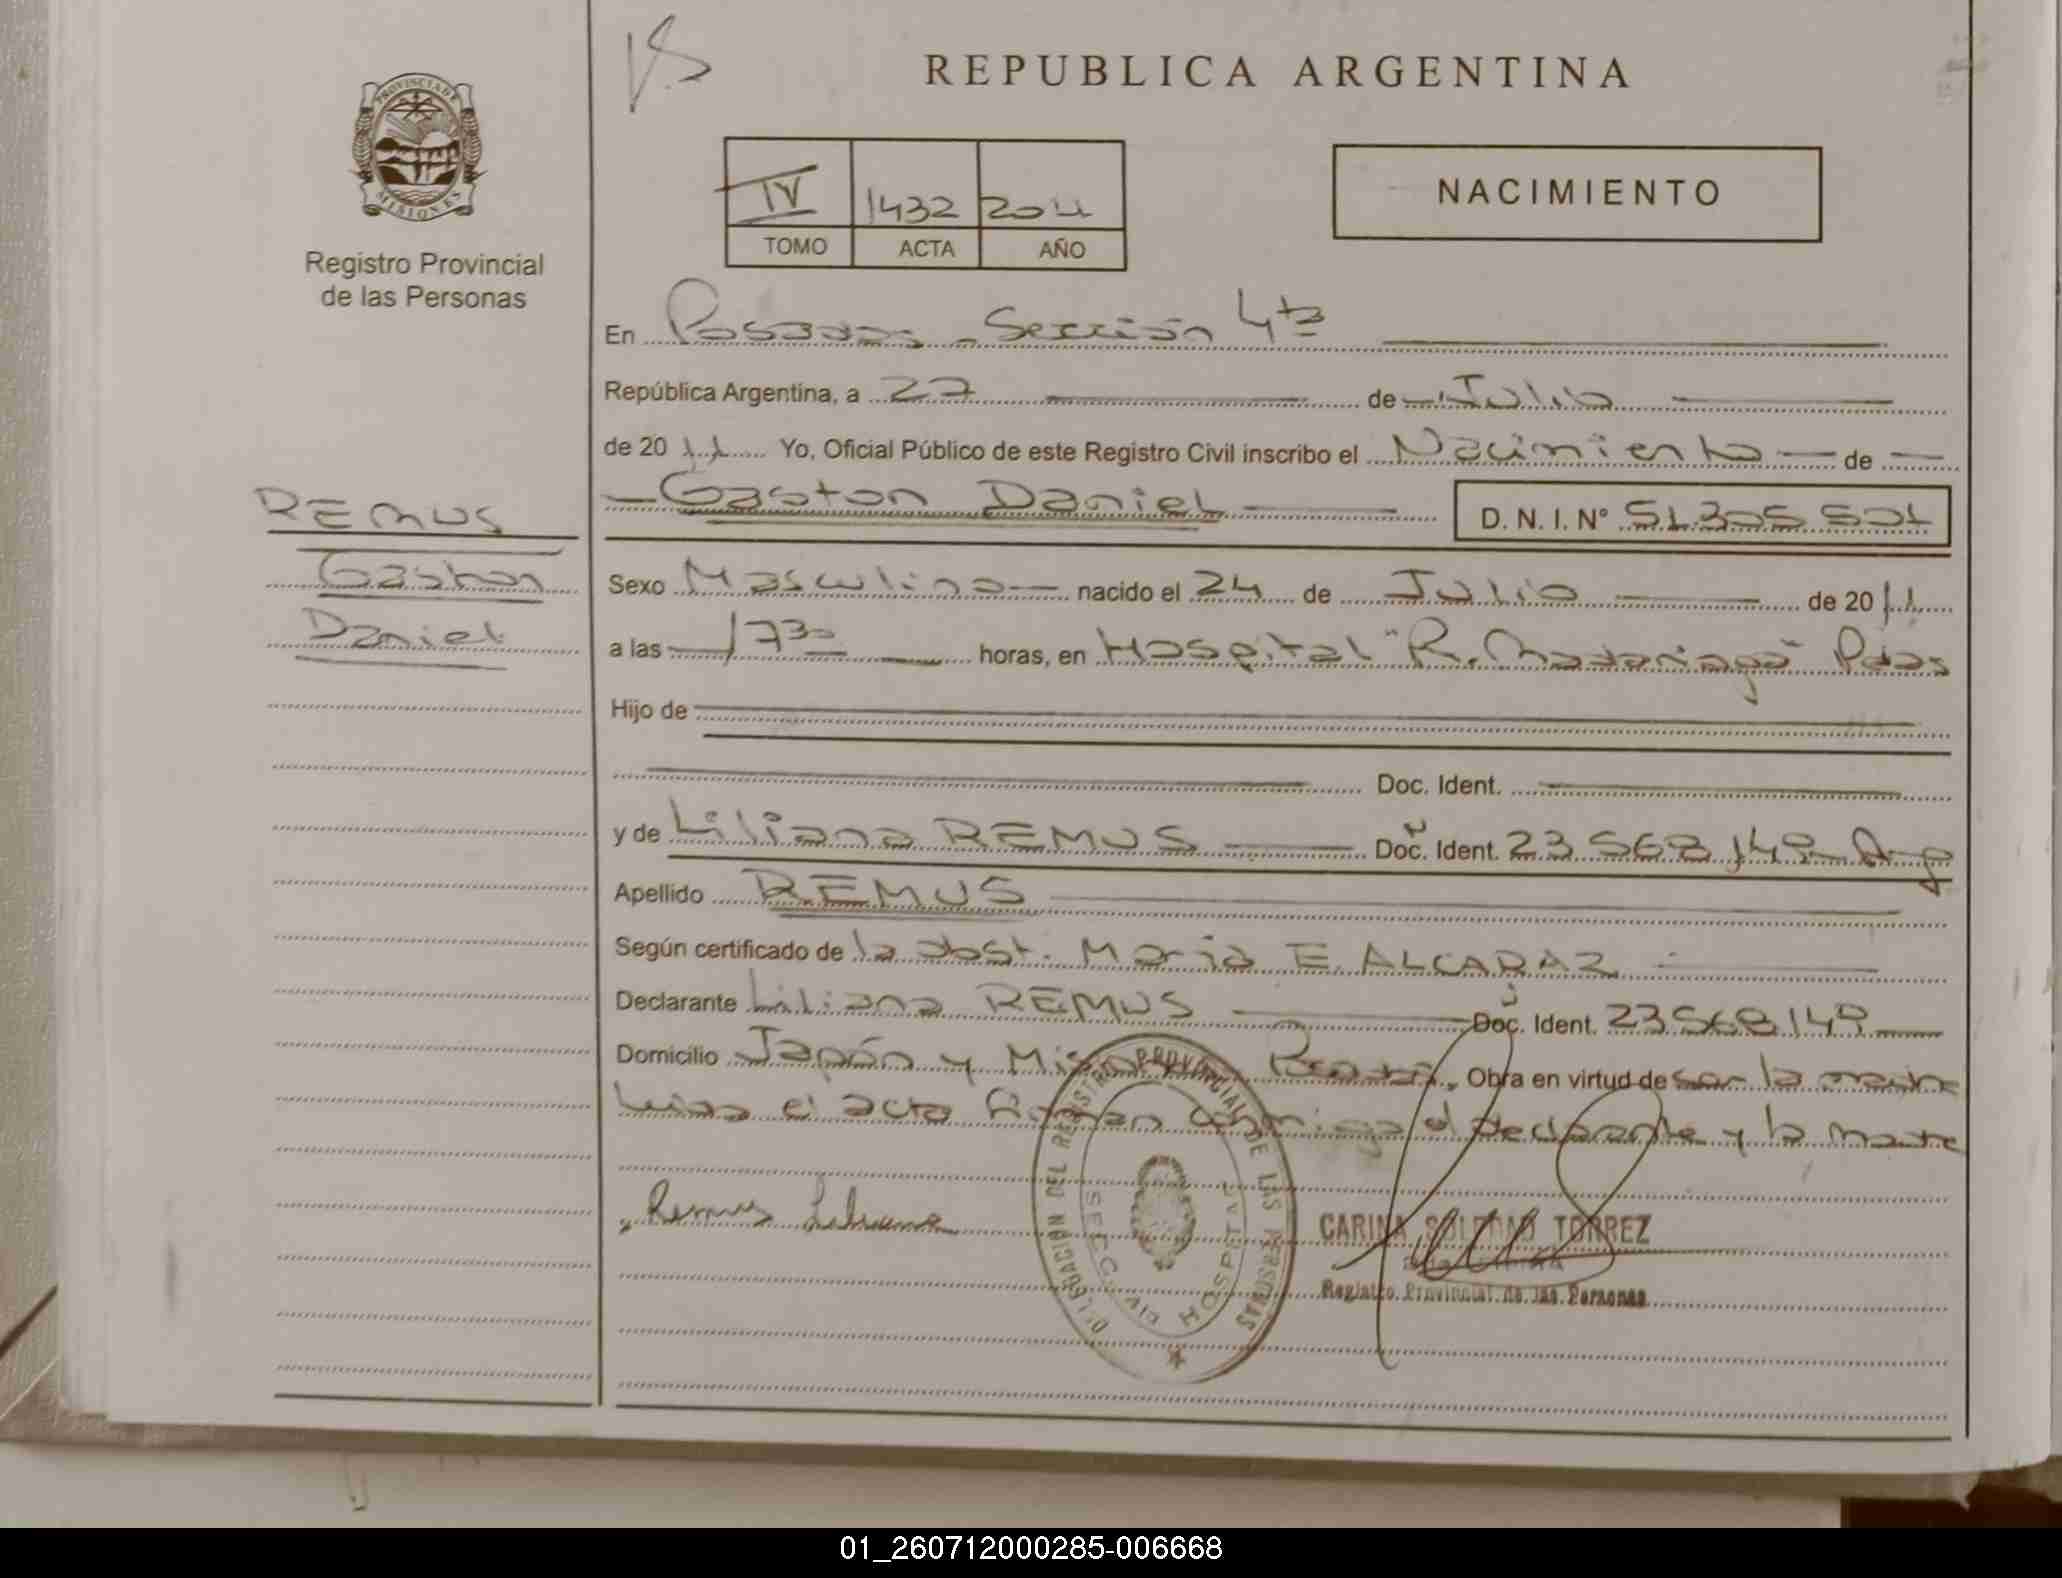 REPUBLICA ARGENTINA
PROVINCIA DE
MISIONES
Registro Provincial
de las Personas
IV 1432 2011
TOMO ACTA AÑO
NACIMIENTO
En Posadas - Sección 4ta
República Argentina, a 27 de Julio
de 20 11 Yo, Oficial Público de este Registro Civil inscribo el Nacimiento de
Gaston Daniel D. N. I. Nº 51.305.501
REMUS
Gaston
Daniel
Sexo Masculino nacido el 24 de Julio de 20 11
a las 17 30 horas, en Hospital "R. Madariaga" Pdas
Hijo de
Doc. Ident.
y de Liliana REMUS Doc. Ident. 23.568.149 Arg
Apellido REMUS
Según certificado de la obst. Maria E. ALCARAZ
Declarante Liliana REMUS Doc. Ident. 23.568.149
Domicilio Japón y Obra en virtud de ser la madre
el acta firman conmigo el declarante y la madre
Remus Liliana
DELEGACION DEL REGISTRO PROVINCIAL DE LAS PERSONAS
SECC. IV HOSPITAL
CARINA SOLEDAD TORREZ
Registro Provincial de las Personas
01_260712000285-006668